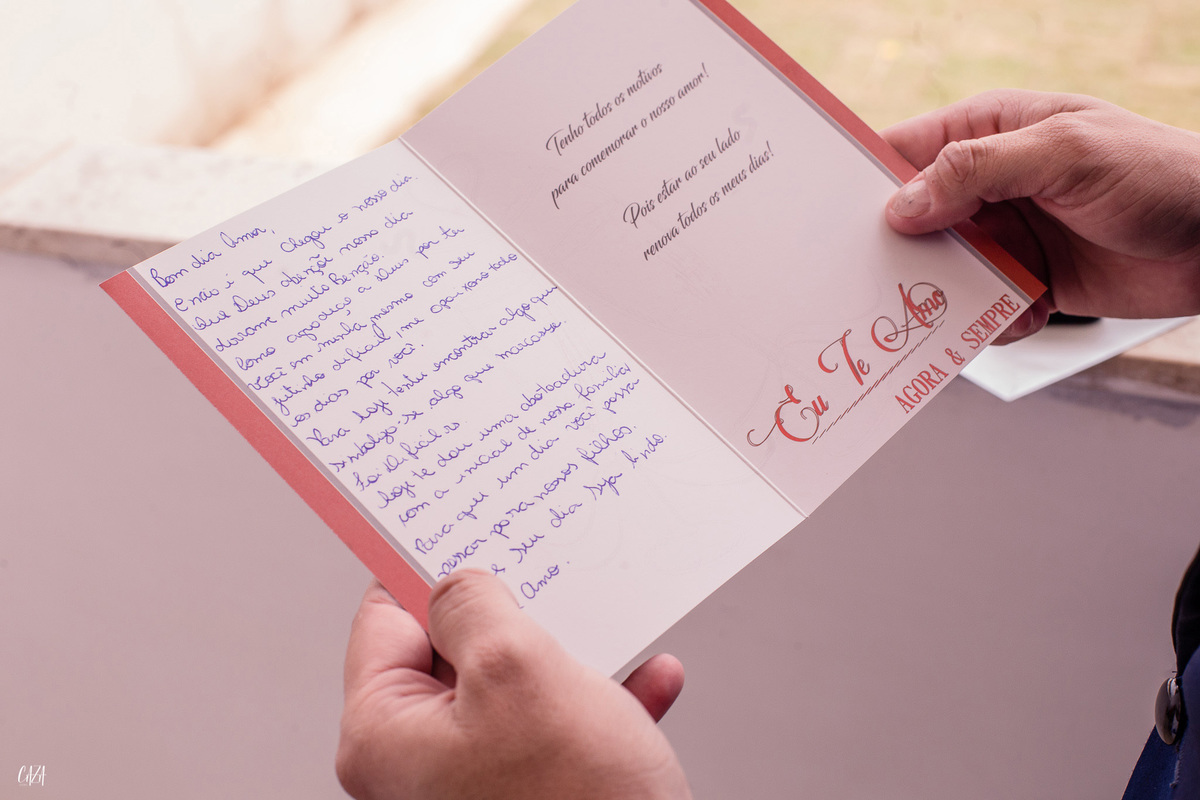 Bom dia Amor,
e não é que chegou o nosso dia.
Que Deus abençõe nosso dia
derrame muito Benção.
Como agradeço a Deus por ter
você em minha, mesmo com seu
jeitinho dificil, me apaixono todo
os dias por você.
Para hoje tentei encontrar algo que
simbolize-se algo que marcasse.
Foi dificil rs.
hoje te dou uma abotoadura
com a inicial de nossa familia
Para que um dia você possa
passar para nossos filhos.
e seu dia seja lindo.
Amo.
Tenho todos os motivos
para comemorar o nosso amor!
Pois estar ao seu lado
renova todos os meus dias!
Eu Te Amo
AGORA & SEMPRE
CAZA